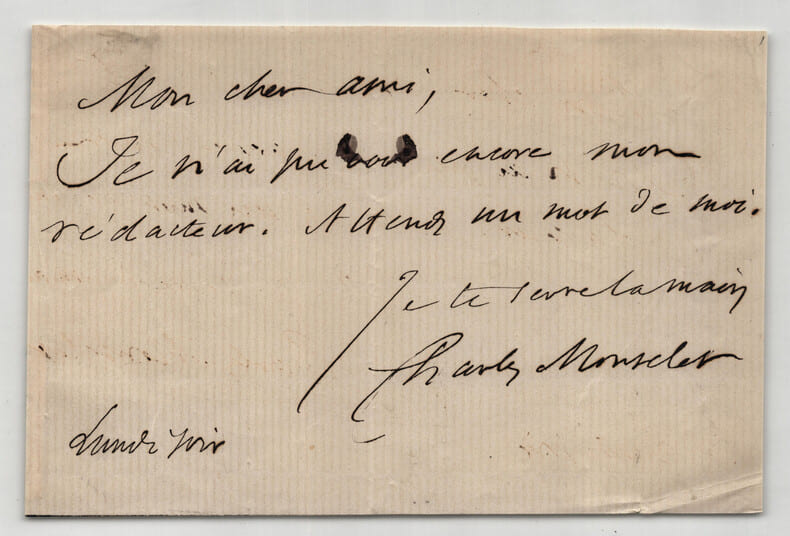 Mon cher ami,
Je n'ai pu voir encore mon
rédacteur. Attends un mot de moi.
Je te serre la main
Charles Monselet
Lundi soir